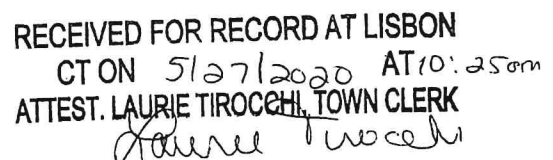 RECEIVED FOR RECORD AT LISBON
CT ON 5/27/2020 AT 10:25am
ATTEST. LAURIE TIROCCHI, TOWN CLERK
Laurie Tirocchi